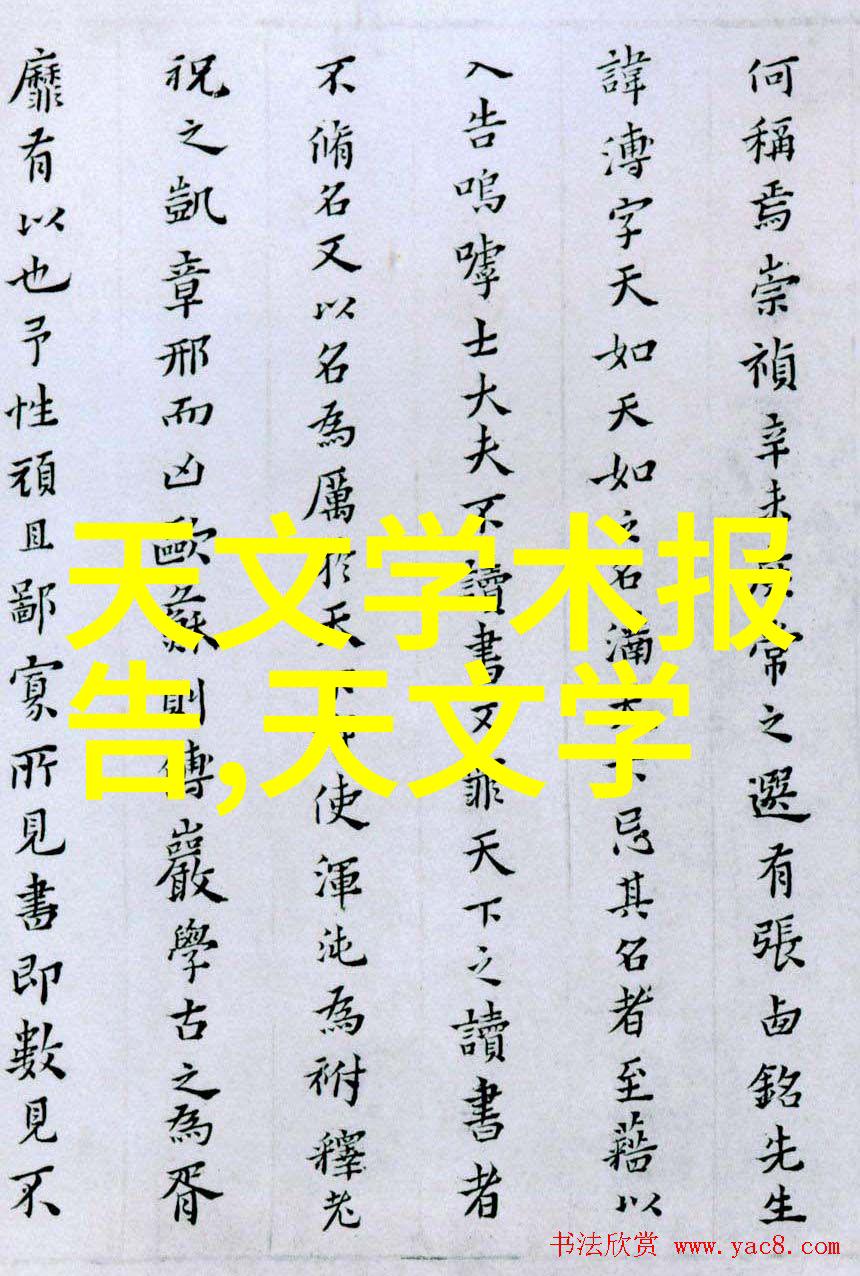 何稱焉崇禎辛未庶常之選有張卣銘先生
諱溥字天如天如之名滿天下忌其名者至藉以
入告嗚嘑士大夫不讀書又罪天下之讀書者
不脩名又以名為厲於天下使渾沌為祔釋老
祝之凱章邢而凶歐蘇則傅巖學古之為胥
靡有以也予性頑且鄙寡所見書即數見不
天文学术报
告,天文学
书法欣赏 www.yac8.com